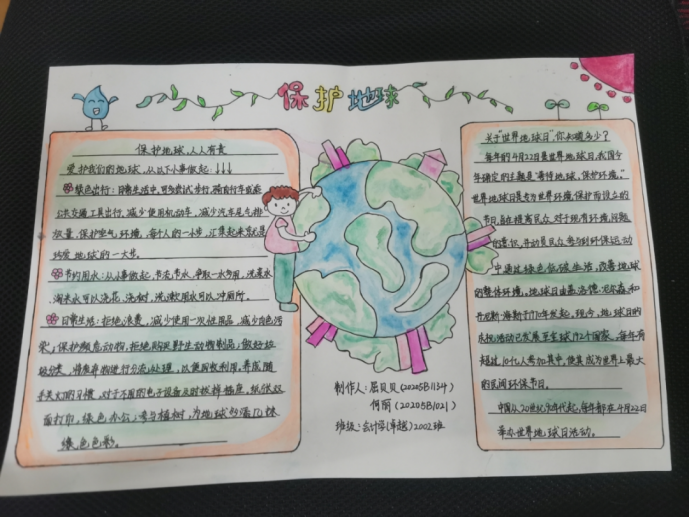 保护地球
保护地球,人人有责
爱护我们的地球,从以下小事做起:↓↓↓
绿色出行:日常生活中,可多尝试步行,骑自行车或乘
公共交通工具出行,减少使用机动车,减少汽车尾气排
放量,保护空气环境,每个人的一小步,汇集起来就是
环境地球的一大步。
节约用水:从小事做起,节流、节水,争取一水多用,洗菜水
淘米水可以浇花、浇树,洗漱饮用水可以冲厕所。
日常生活:拒绝浪费,减少使用一次性用品,减少白色污
染;保护濒危动物,拒绝购买野生动物制品;做好垃
圾分类,将废弃物进行分流处理,以便回收利用,养成随
手关灯的习惯,对于不用的电子设备及时拔掉插座,纸张双
面打印,绿色办公;参与植树,为地球
绿色色彩。
制作人:屈贝贝(20205B1134)
何丽(20205B1021)
班级:会计学(卓越)2002班
关于“世界地球日”,你知道多少?
每年的4月22日是世界地球日,我国今
年确定的主题是“珍惜地球,保护环境。”
世界地球日是专为世界环境保护而设立的
节日,旨在提高民众对于现有环境问题
的意识,并动员民众参与到环保运动
中,通过绿色低碳生活,改善地球
的整体环境。地球日由盖洛德·尼尔森和
丹尼斯·海斯于1970年发起,现今,地球日的
庆祝活动已发展至全球192个国家,每年有
超过10亿人参加其中,使其成为世界上最大
的民间环保节日。
中国从20世纪90年代起,每年都在4月22日
举办世界地球日活动。